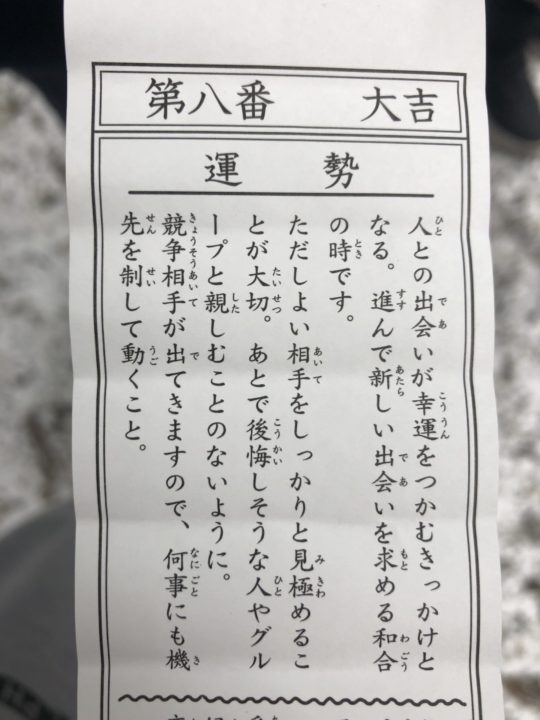 第八番　大吉
運勢
人との出会いが幸運をつかむきっかけと
なる。進んで新しい出会いを求める和合
の時です。
ただしよい相手をしっかりと見極めるこ
とが大切。あとで後悔しそうな人やグル
ープと親しむことのないように。
競争相手が出てきますので、何事にも機
先を制して動くこと。